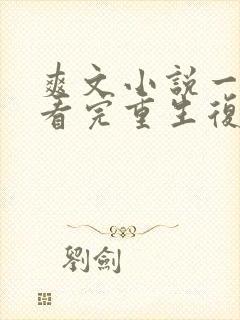 爽文小説一
看完重生復
劉劍